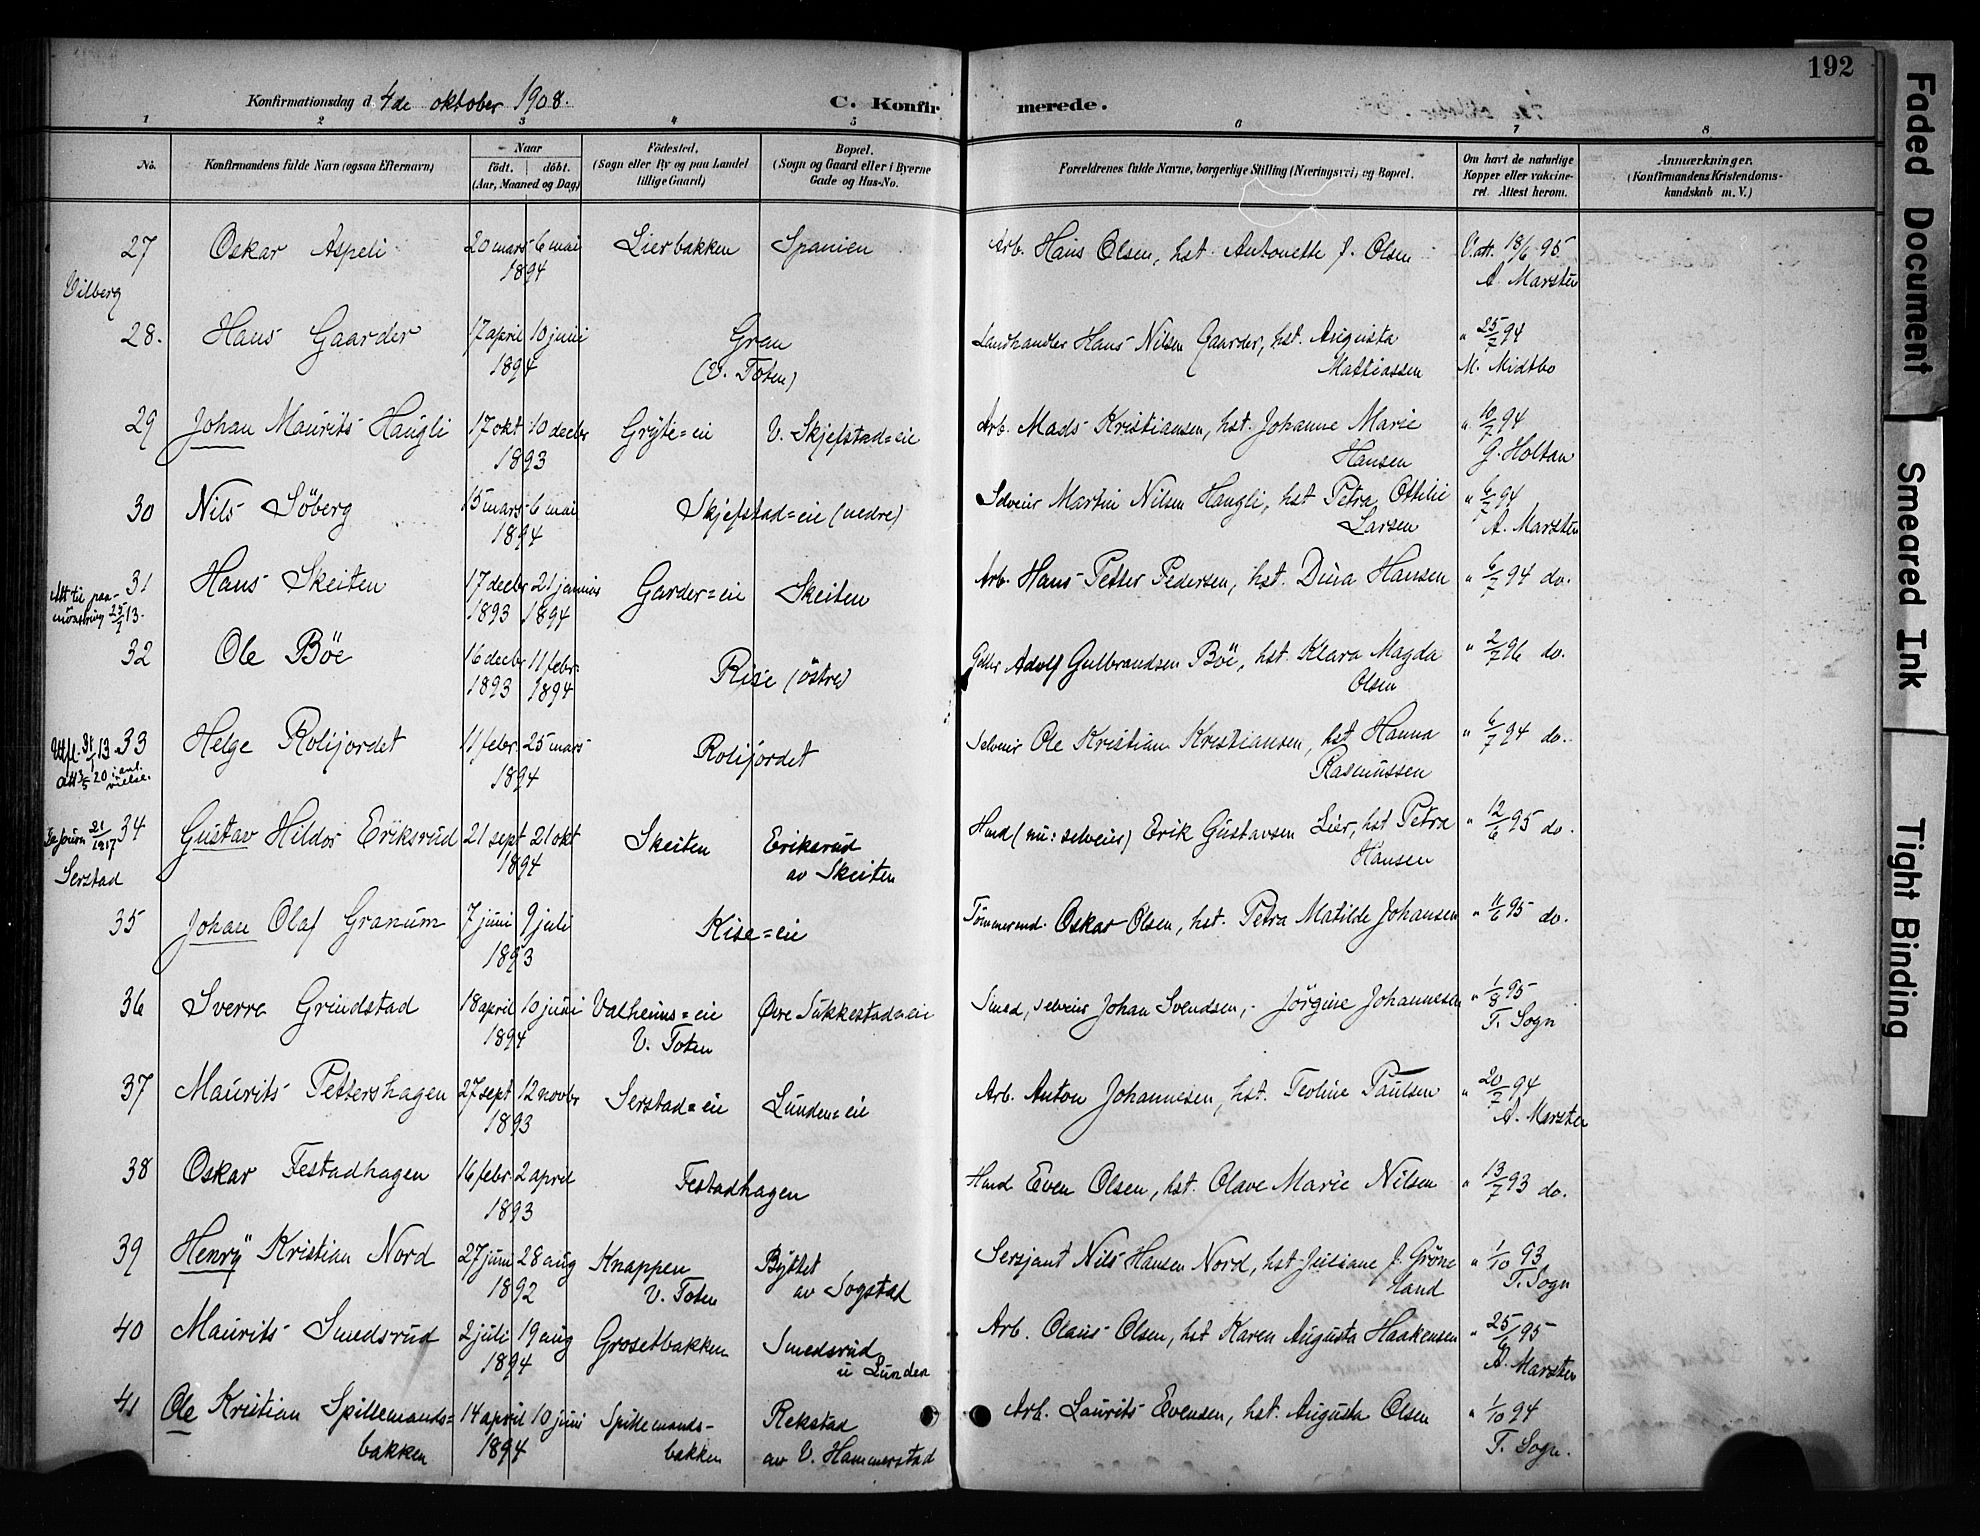 192
Konfirmationsdag d. 4de oktober 1908.
C. Konfirmerede.
1 2 3 4 5 6 7 8
No. Konfirmandens fulde Navn (ogsaa Efternavn) Naar födt. döbt. (Aar, Maaned og Dag) Födested. (Sogn eller By og paa Landet tillige Gaard) Bopæl. (Sogn og Gaard eller i Byerne Gade og Hus-No. Forældrenes fulde Navne, borgerlige Stilling (Næringsvei) og Bopæl. Om havt de naturlige Kopper eller vakcineret. Attest herom. Anmærkninger. (Konfirmandens Kristendomskundskab m. V.)
27 Oskar Aspeli 20 mars 6 mai Lierbakken Spanien Arb. Hans Olsen, hst. Antonette f. Olsen V. att. 18/6 95
Vilberg 1894 A. Marsten
28. Hans Gaarder 17 april 10 juni Gran Landhandler Hans Nilsen Gaarder, hst. Augusta " 25/7 94
1894 (V. Toten) Mathiassen M. Midtbo
29 Johan Maurits Haugli 17 okt 10 decbr Gryte=eie V. Skjefstad=eie Arb. Mads Kristiansen, hst. Johanne Marie " 10/7 94
1893 Hansen G. Holtan
30 Nils Söberg 15 mars 6 mai Skjefstad=eie (nedre) Selveier Martin Nilsen Haugli, hst Petra Ottilie " 6/7 94
1894 Larsen A. Marsten
31 Hans Skeiten 17 decbr 21 januar Garder=eie Skeiten Arb. Hans Petter Pedersen, hst. Dina Hansen " 6/7 94 do.
Att til paamönstring 25/7 13. 1893 1894
32 Ole Böe 16 decbr 11 febr. Rise (östre) Adolf Gulbrandsen Böe, hst. Klara Magda " 2/7 96 do.
1893 1894 Olsen
33 Helge Rolijordet 11 febr. 25 mars Rolijordet Selveier Ole Kristian Kristiansen, hst Hanna " 6/7 94 do.
1894 Rasmussen
34 Gustav Hildor Eriksrud 21 sept 21 okt Skeiten Eriksrud Hmd (nu: selveier) Erik Gustavsen Lier, hst Petra " 12/6 95 do.
21/1917 Serstad 1894 av Skeiten Hansen
35 Johan Olaf Granum 7 juni 9 juli Kise=eie Tömmermd. Oskar Olsen, hst. Petra Matilde Johansen " 11/6 95 do.
1893
36 Sverre Grindstad 18 april 10 juni Valheims=eie Övre Sukkestad=eie Smed, selveier Johan Svendsen, - Jörgine Johannesen " 1/8 95
1894 V. Toten T. Sogn
37 Maurits Pettershagen 27 sept 12 novbr Serstad=eie Lunden=eie Arb. Anton Johannesen, hst. Teoline Paulsen " 20/7 94
1893 A. Marsten
38 Oskar Festadhagen 16 febr 2 april Festadhagen Hmd Even Olsen, hst. Olave Marie Nilsen " 13/7 93 do.
1893
39 Henry Kristian Nord 27 juni 28 aug Knappen Byttet Sersjant Nils Hansen Nord, hst Juliane f. Gröne " 1/10 93
1892 V. Toten av Sogstad land T. Sogn
40 Maurits Smedsrud 2 juli 19 aug Grosetbakken Smedsrud Arb. Olaus Olsen, hst Karen Augusta Haakensen " 25/6 95
1894 u Lunden A. Marsten
41 Ole Kristian Spillemands= 14 april 10 juni Spillemands- Rekstad Arb. Laurits Evensen, hst. Augusta Olsen " 1/10 94
bakken 1894 bakken av V. Hammerstad T. Sogn.
Faded Document
Smeared Ink
Tight Binding